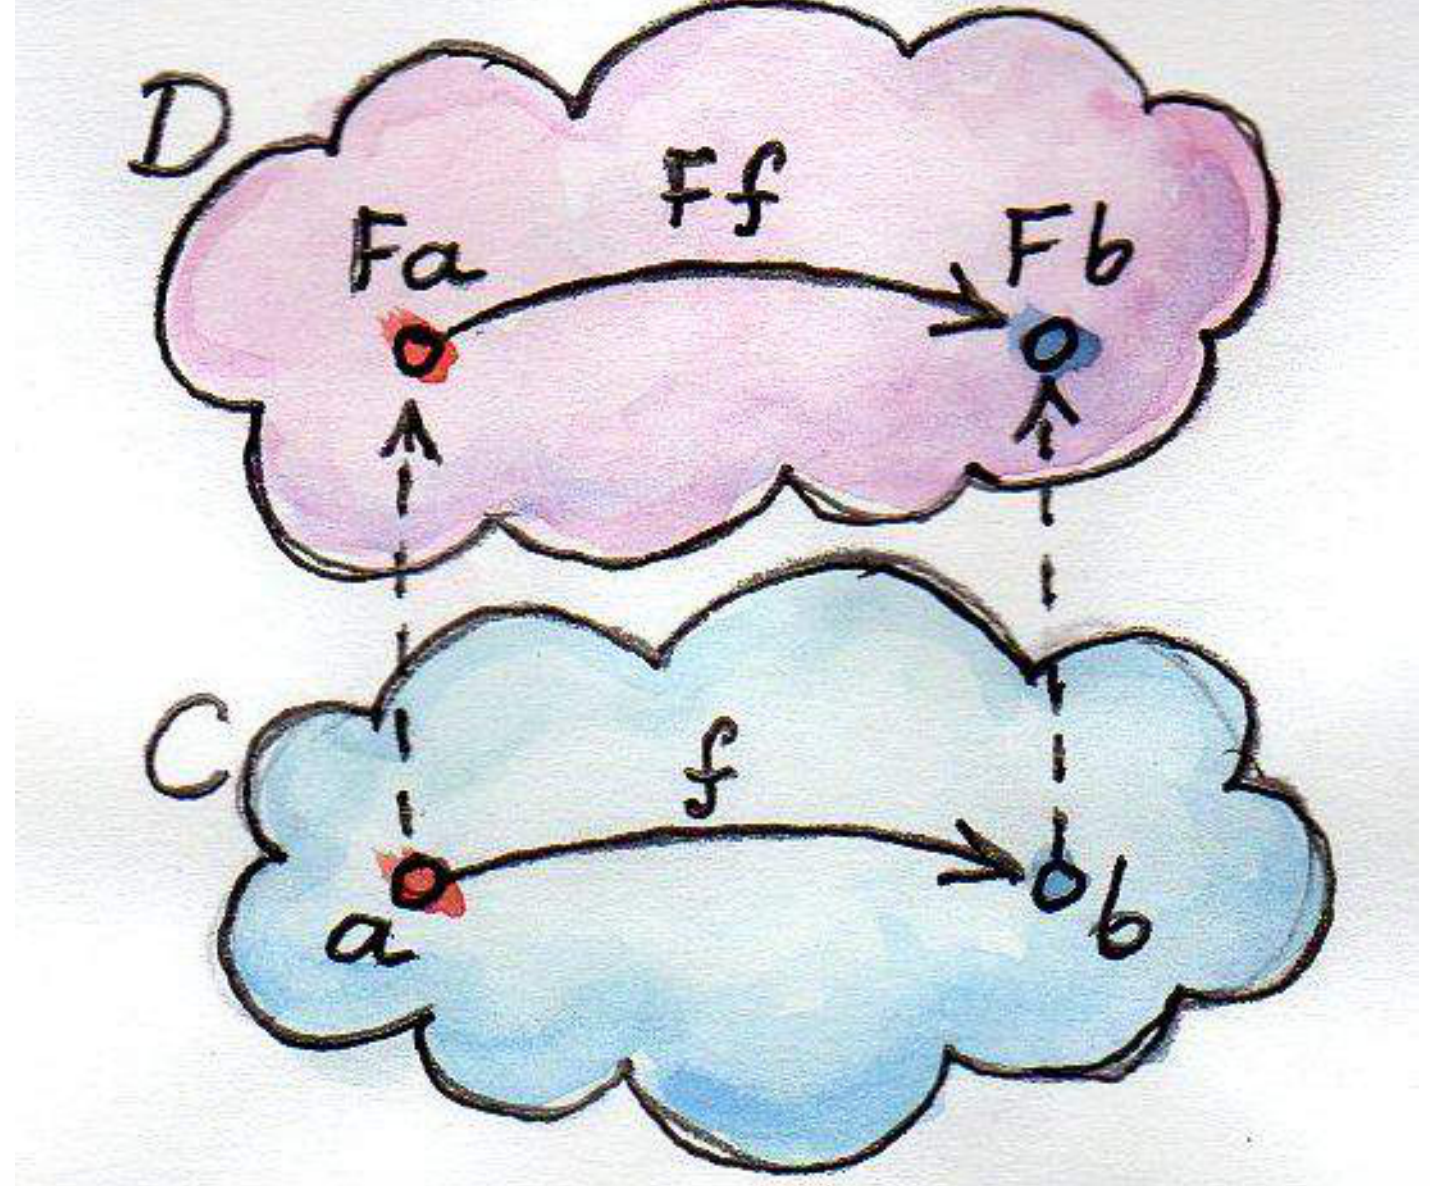 D
Ff
Fa
Fb
C
f
a
b